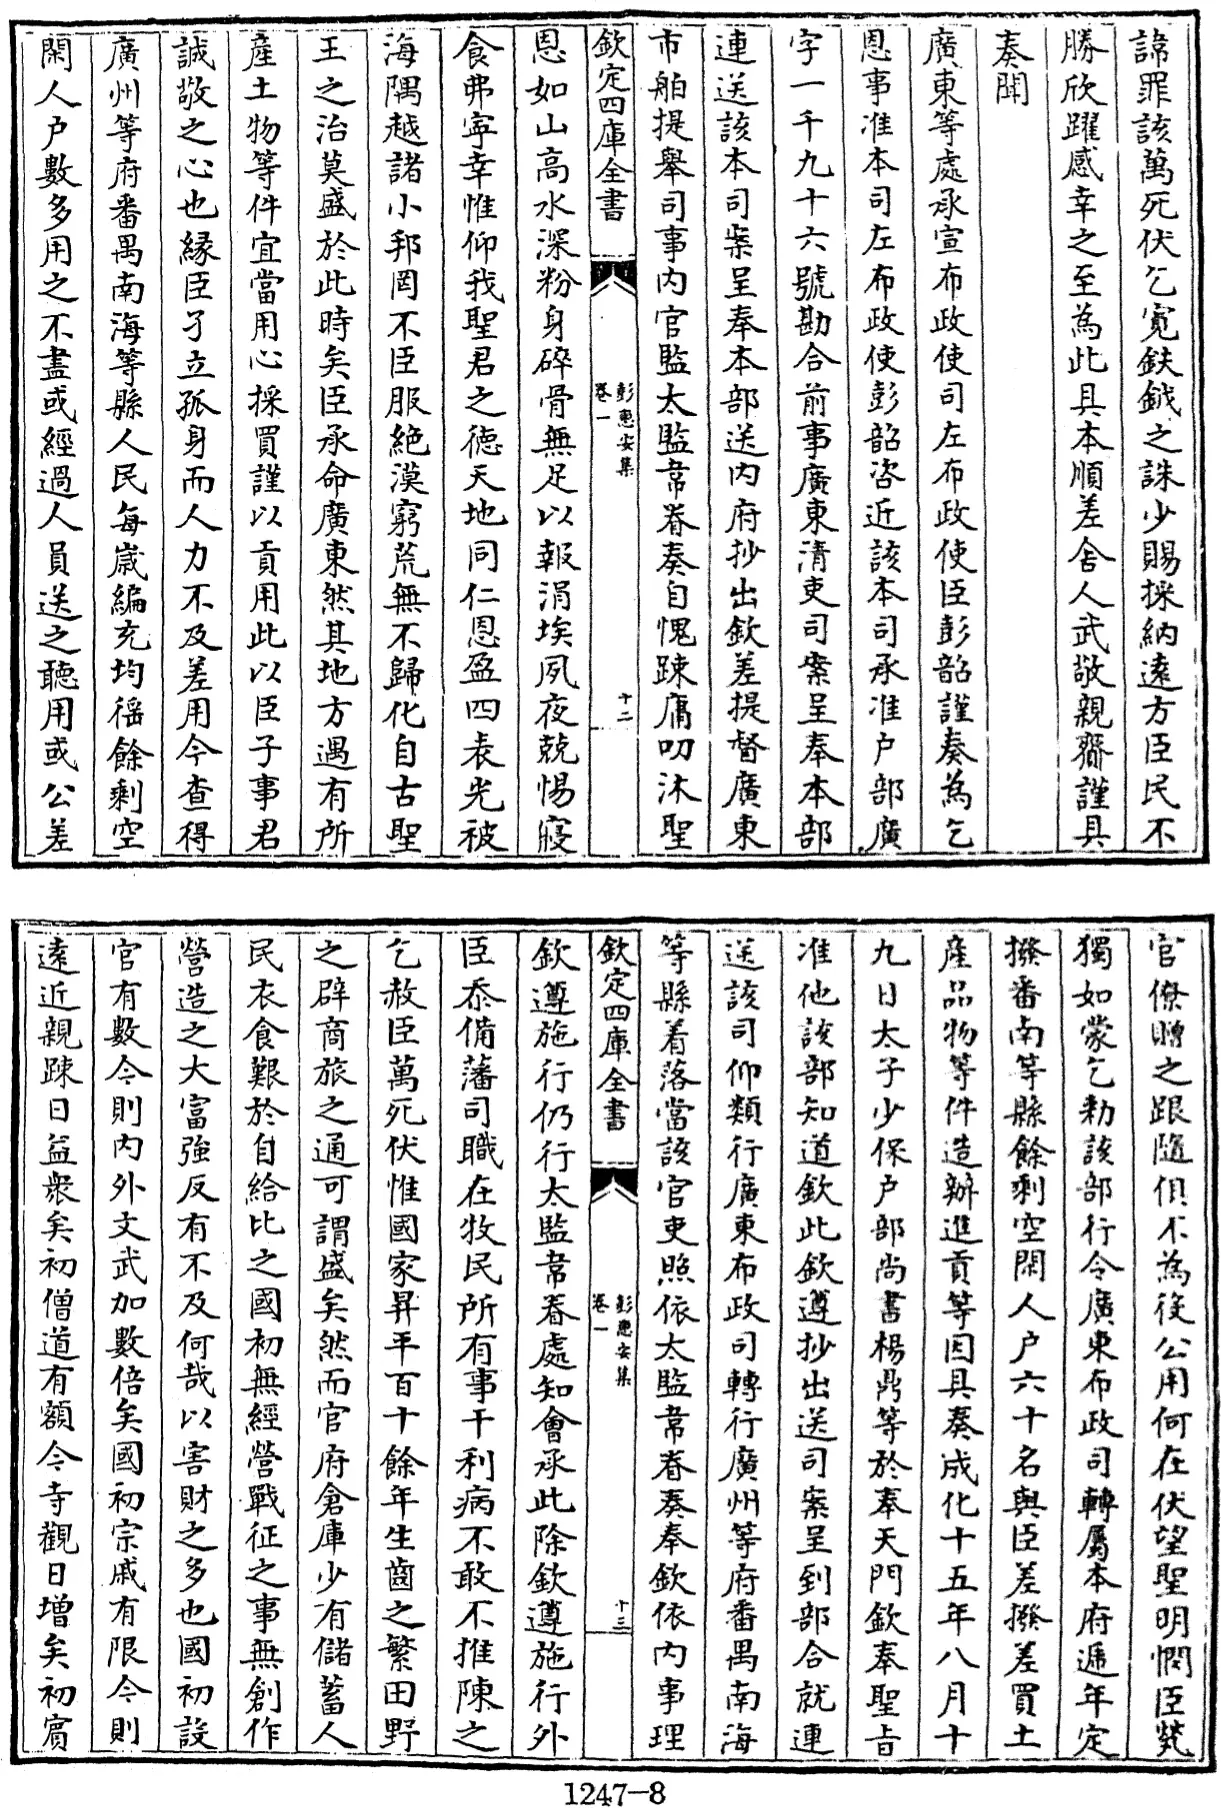 諱罪該萬死伏乞寛鈇鉞之誅少賜採納逺方臣民不
勝欣躍感幸之至為此具本順差舎人武敬親齎謹具
奏聞
廣東等處承宣布政使司左布政使臣彭韶謹奏為乞
恩事准本司左布政使彭韶咨近該本司承准户部廣
字一千九十六號勘合前事廣東清吏司案呈奉本部
連送該本司案呈奉本部送内府抄出欽差提督廣東
市舶提舉司事内官監太監韋眷奏自愧踈庸叨沐聖
欽定四庫全書
彭惠安集
卷一
十二
恩如山高水深粉身碎骨無足以報涓埃夙夜兢惕寢
食弗寧幸惟仰我聖君之德天地同仁恩盈四表光被
海隅越諸小邦罔不臣服絶漠窮荒無不歸化自古聖
王之治莫盛於此時矣臣承命廣東然其地方遇有所
產土物等件宜當用心採買謹以貢用此以臣子事君
誠敬之心也縁臣孑立孤身而人力不及差用今查得
廣州等府番禺南海等縣人民每嵗編充均徭餘剩空
閑人户數多用之不盡或經過人員送之聽用或公差
官僚贈之跟隨俱不為從公用何在伏望聖明憫臣煢
獨如蒙乞勅該部行令廣東布政司轉屬本府遞年定
撥番南等縣餘剩空閑人户六十名與臣差撥差買土
産品物等件造辦進貢等因具奏成化十五年八月十
九日太子少保户部尚書楊鼎等於奉天門欽奉聖旨
准他該部知道欽此欽遵抄出送司案呈到部合就連
送該司仰類行廣東布政司轉行廣州等府番禺南海
等縣着落當該官吏照依太監韋眷奏奉欽依内事理
欽定四庫全書
彭惠安集
卷一
十三
欽遵施行仍行太監韋眷處知會承此除欽遵施行外
臣忝備藩司職在牧民所有事干利病不敢不推陳之
乞赦臣萬死伏惟國家昇平百十餘年生齒之繁田野
之辟商旅之通可謂盛矣然而官府倉庫少有儲蓄人
民衣食艱於自給比之國初無經營戰征之事無創作
營造之大富強反有不及何哉以害財之多也國初設
官有數今則内外文武加數倍矣國初宗戚有限今則
逺近親踈日益衆矣初僧道有額今寺觀日增矣初賔
1247-8